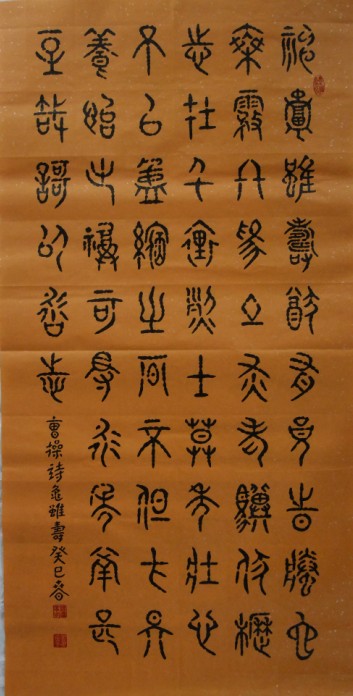 神龜雖壽猶有竟時螣蛇
乘霧終為土灰老驥伏櫪
志在千里烈士暮年壯心
不已盈縮之期不但在天
養怡之福可得永年幸甚
至哉歌以詠志
曹操詩龜雖壽癸巳春